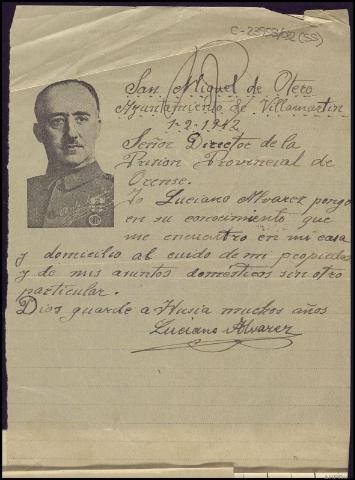 C-23553/92 (59)
San Miguel de Otero
Ayuntamiento de Villamartin
1-2-1942
Señor Director de la
Prision Provincial de
Orense.
Yo Luciano Alvarez pongo
en su conocimiento que
me encuentro en mi casa
y domicilio al cuido de mi propiedad
y de mis asuntos domesticos sin otro
particular.
Dios guarde a Husia muchos años
Luciano Alvarez